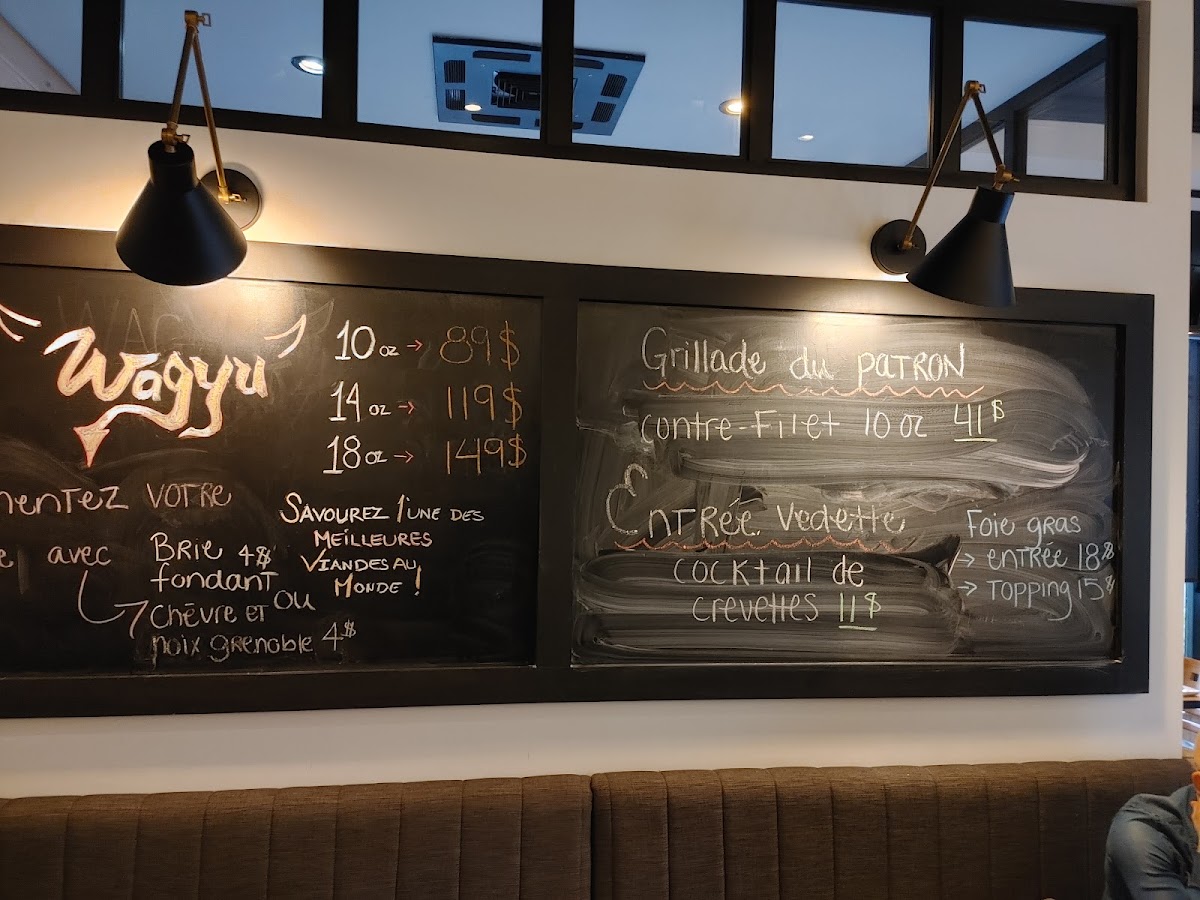 Wagyu
10 oz → 89$
14 oz → 119$
18 oz → 149$
VOTRE
avec
BRIE 4$
fondant
OU
CHÈVRE ET
noix grenoble 4$
SAVOUREZ l'UNE DES
MEILLEURES
VIANDES AU
MONDE !
Grillade du PATRON
contre-Filet 10 oz 41$
ENTRÉE Vedette
cocktail de
crevettes 11$
Foie gras
→ entrée 18$
→ Topping 15$